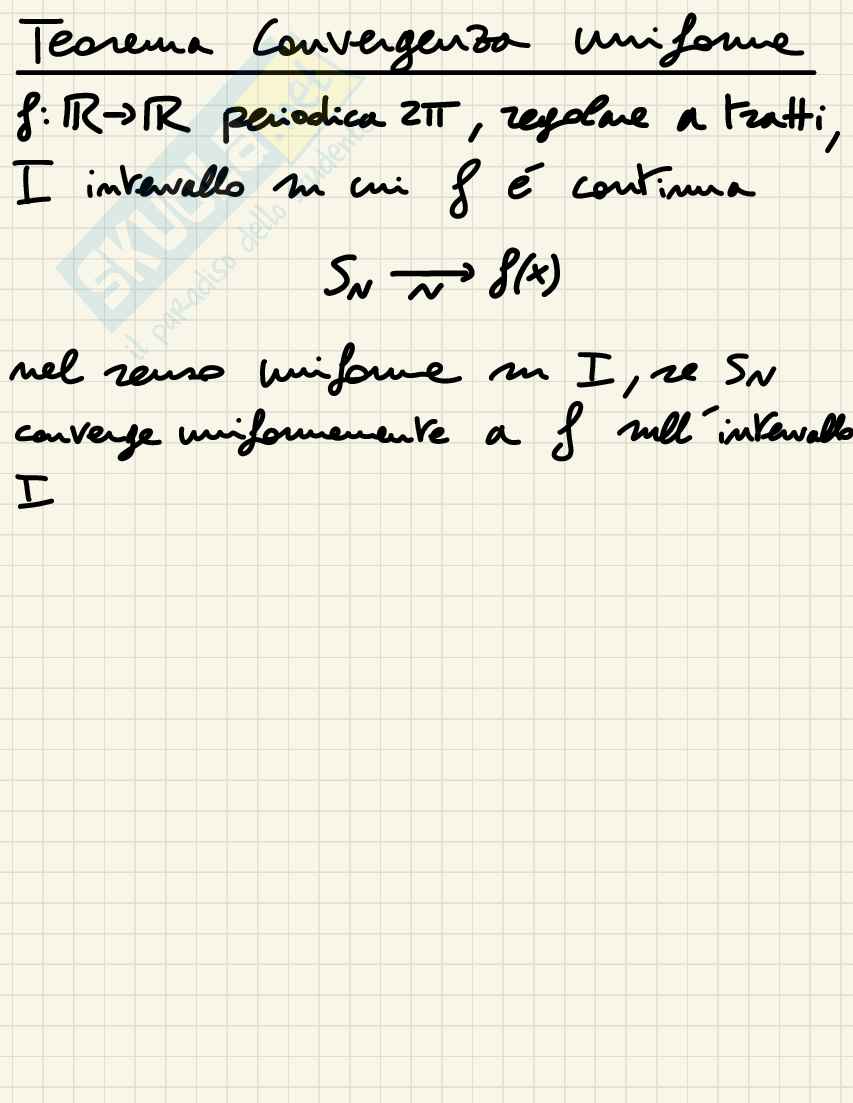 Teorema Convergenza uniforme
f: ℝ→ℝ periodica 2π, regolare a tratti,
I intervallo in cui f é continua
S_N →_N f(x)
nel senso uniforme in I, se S_N
converge uniformemente a f sull'intervallo
I
SKUOLA.net
il paradiso dello studente